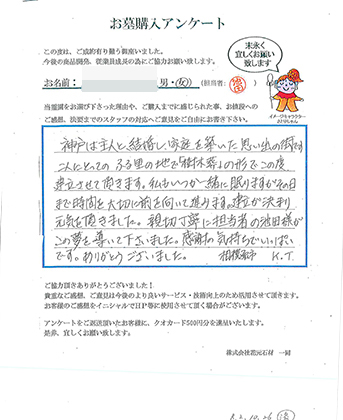 お墓購入アンケート
この度は、ご成約有り難う御座いました。
今後の商品開発、従業員成長の為にご協力お願い致します。
末永く
宜しくお願い
致します
お名前: 男・女 (担当者:
イメージキャラクター
当霊園をお選び下さった理由や、ご購入までに感じられた事、お値段への
ご感想、決定までのスタッフの対応へご意見をご自由にお書き下さい。
神戸は主人と結婚し家庭を築いた思い出の街です
二人にとってのふる里の地で「樹木葬」の形でこの度
建立させて頂きます。私もいつか一緒に眠りますがその日
まで時間を大切に前を向いて進みます。建立が決まり
元気を頂きました。親切丁寧に担当者の池田様が
この夢を導いて下さいました。感謝の気持ちでいっぱい
です。ありがとうございました。 相模原市 K.T
ご協力頂きありがとうございました!
貴重なご感想、ご意見は今後のより良いサービス・技術向上のため活用させて頂きます。
お客様のご感想をイニシャルでHP等に使用させて頂く場合がございます。
アンケートをご返送頂いたお客様に、クオカード500円分を進呈いたします。
是非、宜しくお願い致します。
株式会社霊元石材 一同